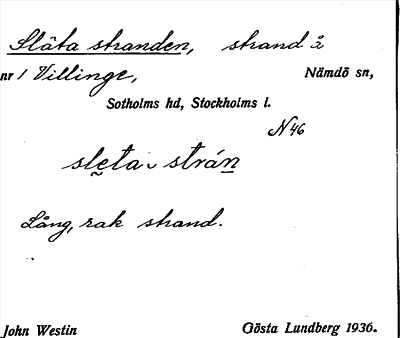 Släta stranden, strand å
nr 1 Villinge, Nämdö sn,
Sotholms hd, Stockholms l.
N 46
sleta strán
Lång, rak strand.
John Westin Gösta Lundberg 1936.